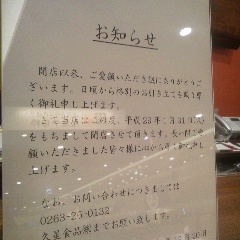 お知らせ
開店以来、ご愛顧いただき誠にありがとうご
ざいます。日頃から格別のお引き立てを賜り厚く
御礼申し上げます。
当店はこの度、平成23年1月31日
をもちまして閉店させて頂きます。長い間ご愛
顧いただきました皆々様に心から
上げます。
なお、お問い合わせにつきましては
0263-25-0132
久星食品㈱までお願い致します。